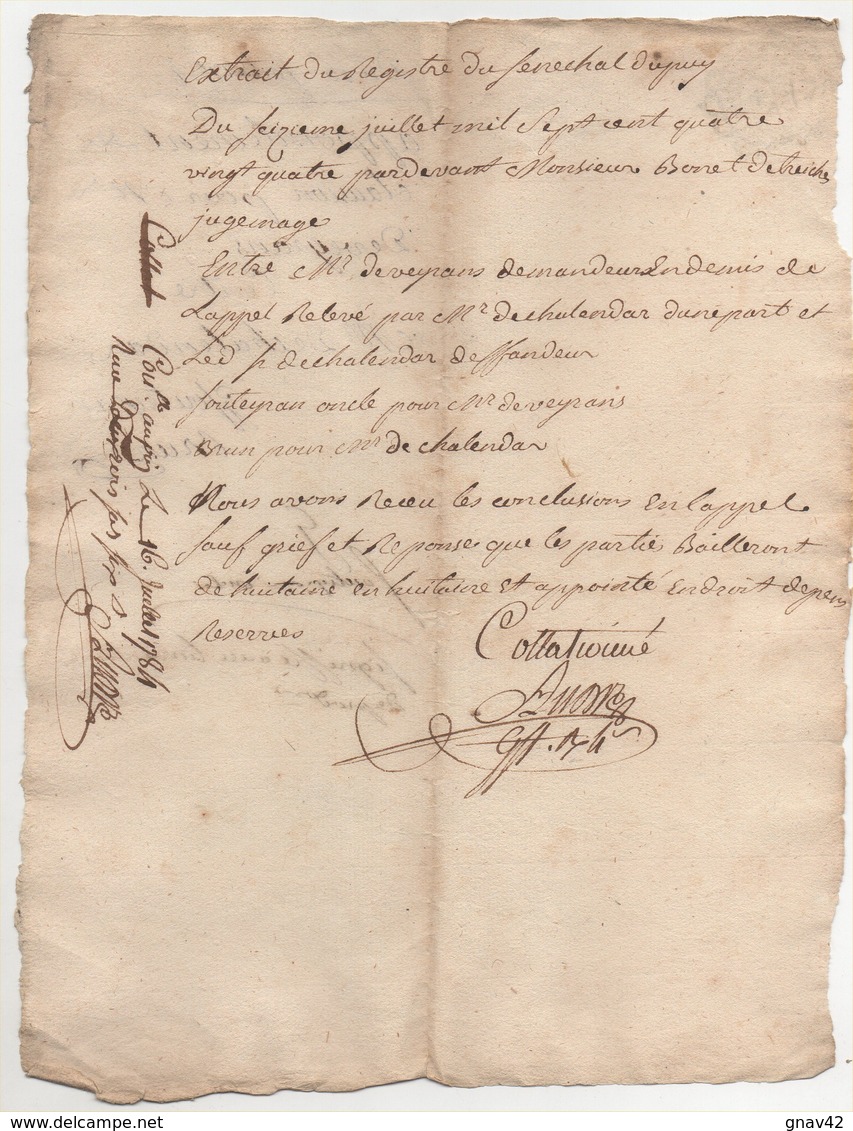 Extrait du Registre du senechal dupuy
Du seizieme juillet mil sept cent quatre
vingt quatre pardevant Monsieur Bonet detreiches
jugemage
Entre Mr. deveyrans demandeur en demis de
Lappel Relevé par Mr. dechalendar dunepart et
Led s. dechalendar deffandeur
souteyran oncle pour Mr. deveyrans
Brun pour Mr. de chalendar
Nous avons Receu les conclusions en lappel
sauf grief et Reponse que les partie Bailleront
de huitaine en huitaine et appointé en droit depens
Reserves
Collationné
Con.lle aupuy Le 16. Juillet 1784
gnav42